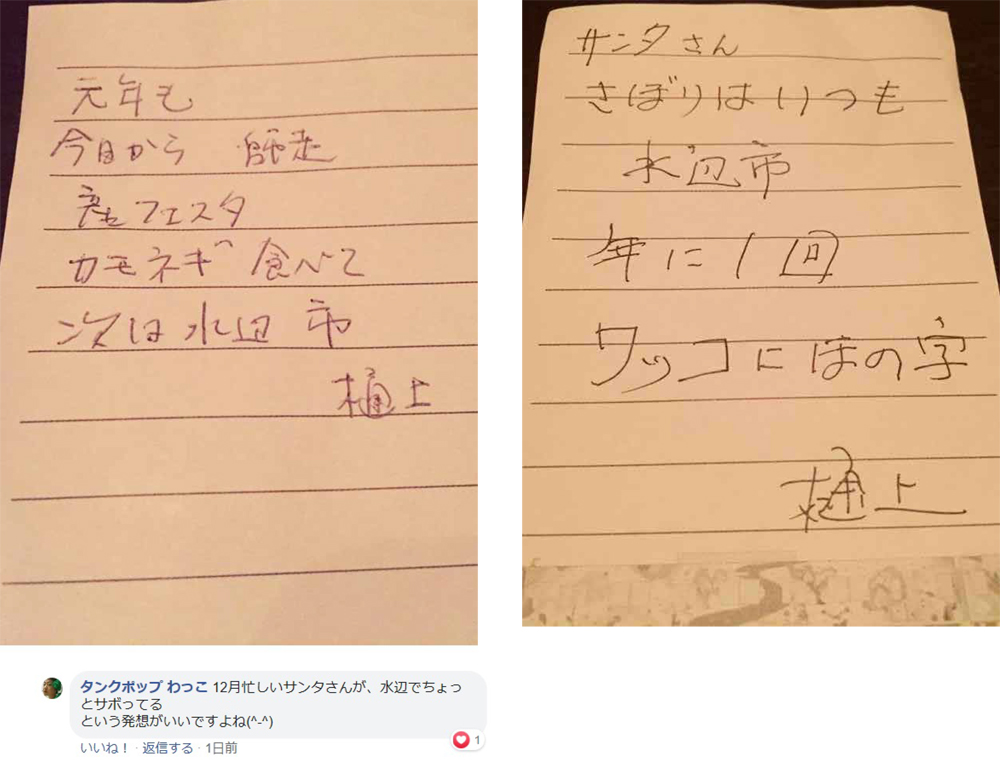 元年も
今日から 師走
産フェスタ
カモネギ食べて
次は水辺 市
樋上
サンタさん
さぼりはいつも
水辺市
年に1回
ワッコにほの字
樋上
タンクポップ わっこ 12月忙しいサンタさんが、水辺でちょっ
とサボってる
という発想がいいですよね(^-^)
いいね！ · 返信する · 1日前
1